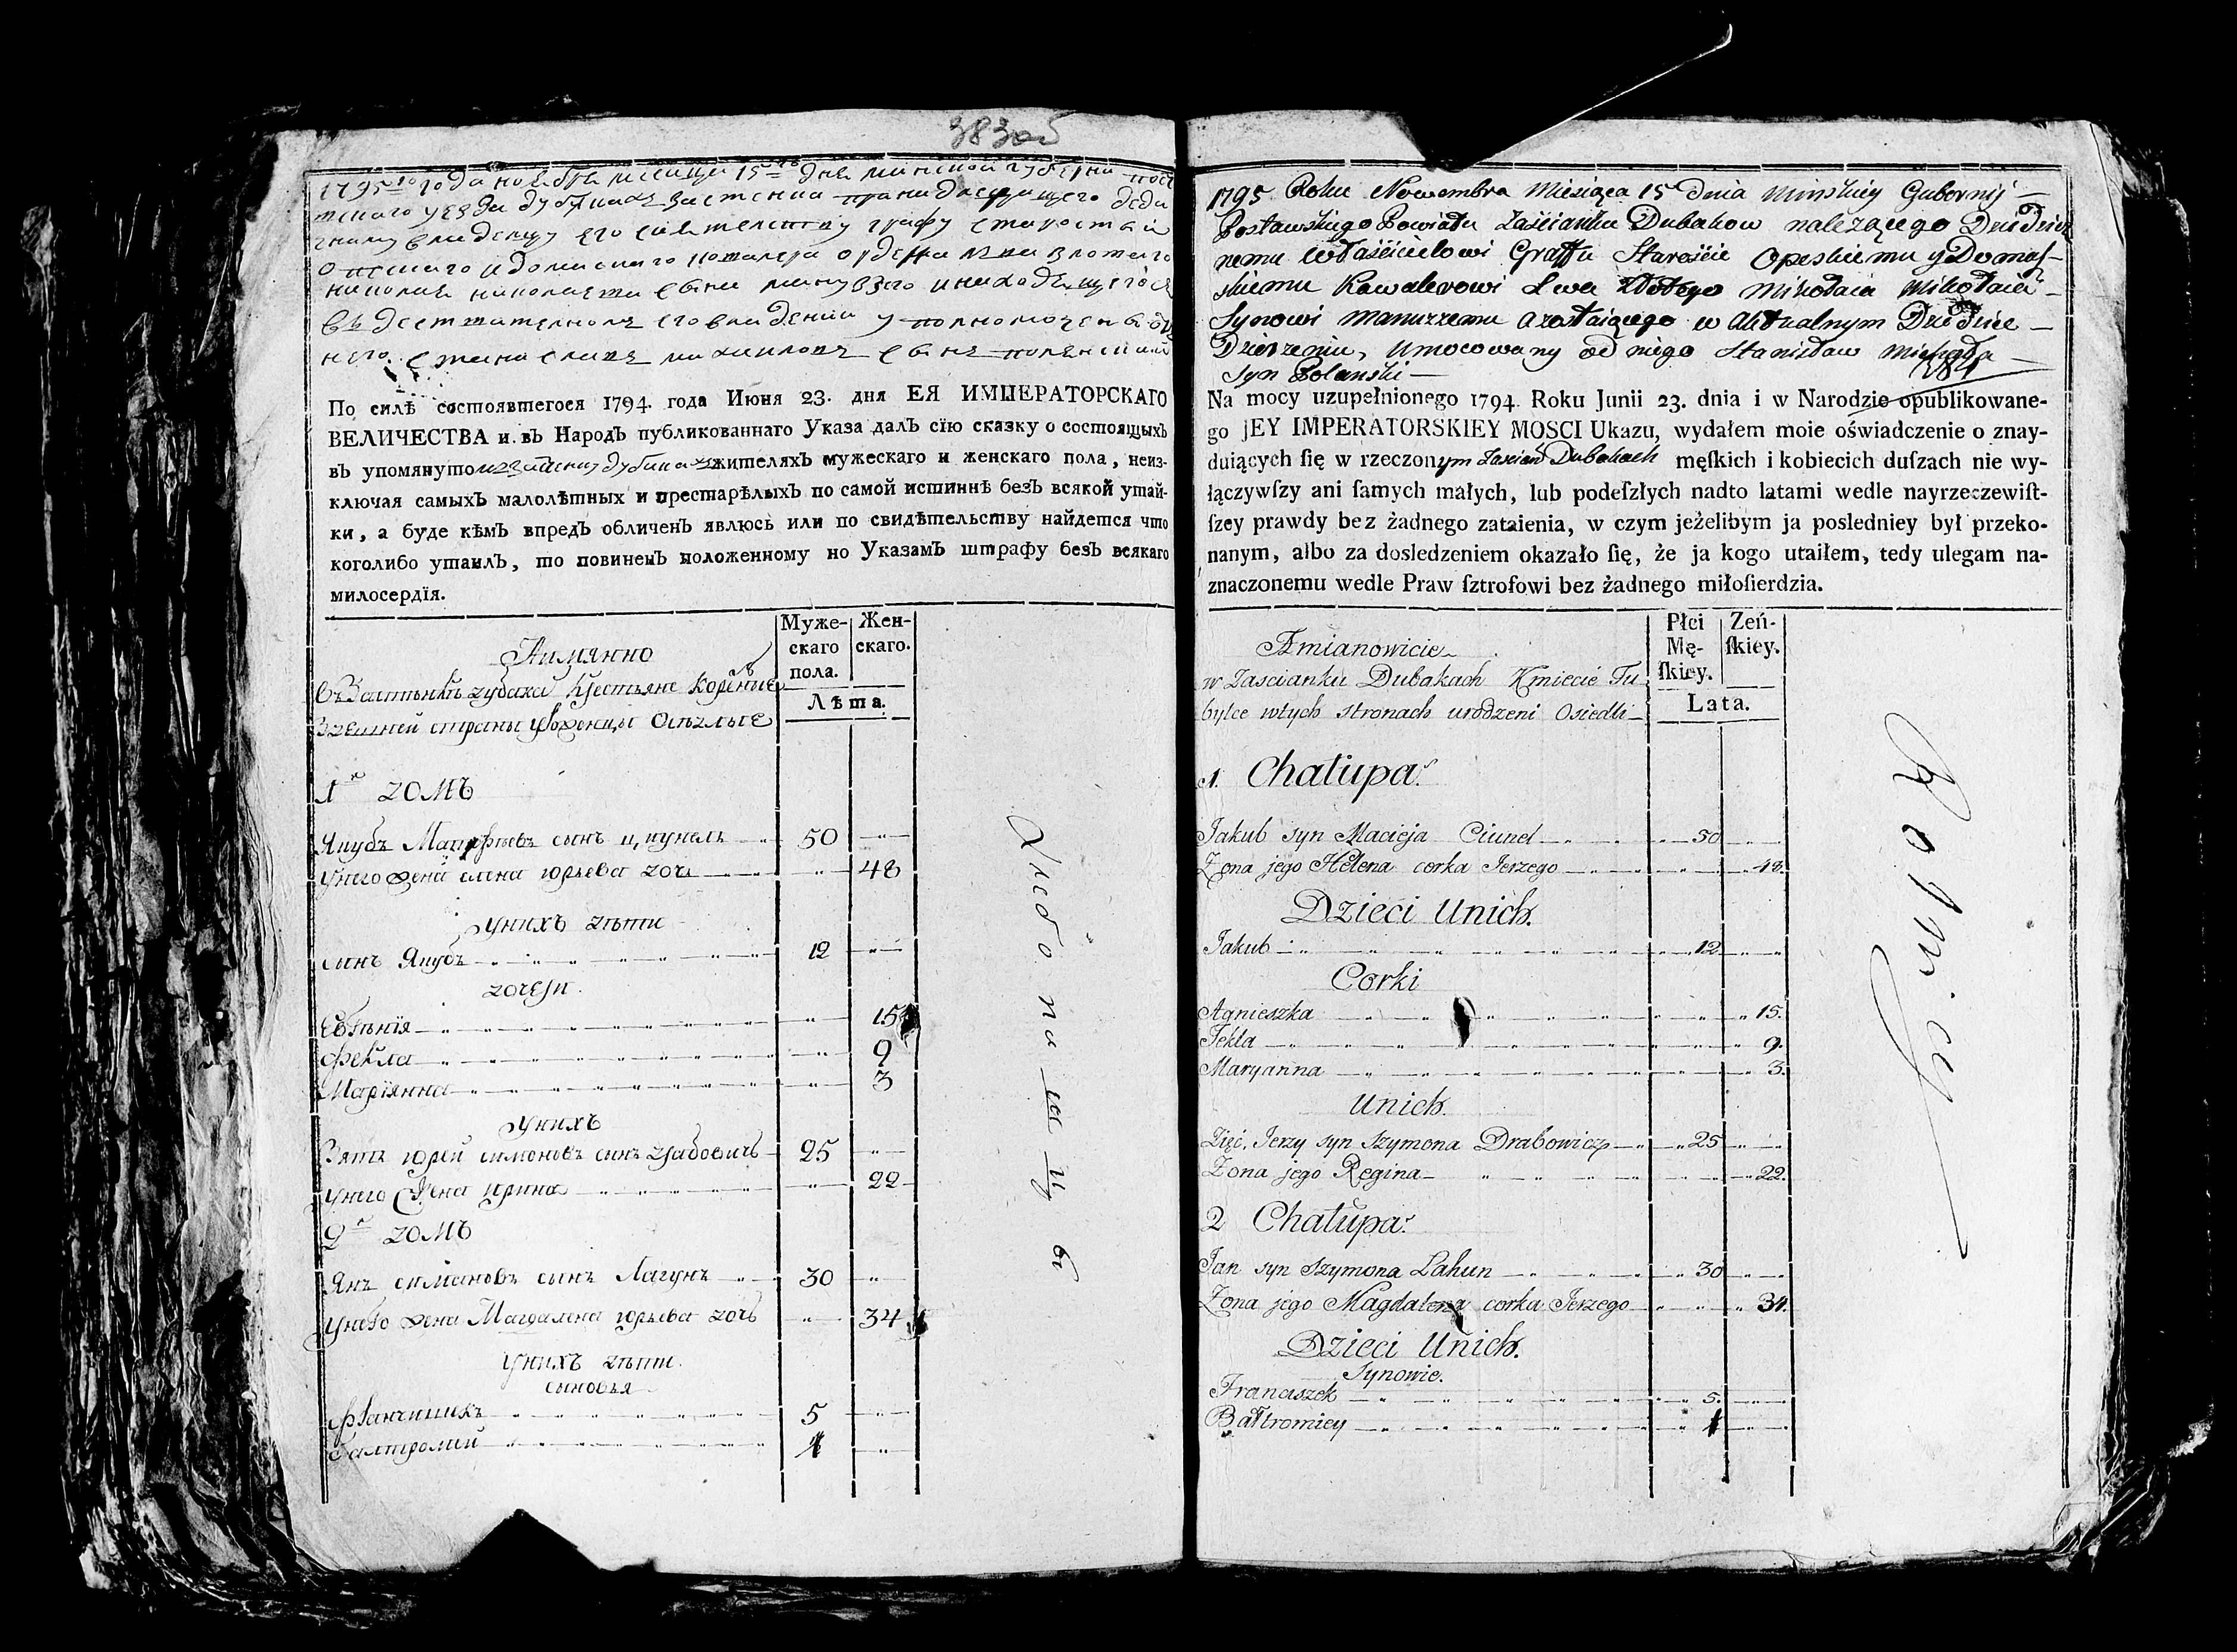 383об
1795го года ноября месяца 15го дня минской губерни пост
Оплечаго
По силѣ состоявшегося 1794. года Июня 23. дня ЕЯ ИМПЕРАТОРСКАГО
ВЕЛИЧЕСТВА и въ Народъ публикованнаго Указа далъ сїю сказку о состоящыхъ
въ упомянуто жителяхъ мужескаго и женскаго пола, неиз-
ключая самыхъ малолѣтных и престарѣлыхъ по самой истиннѣ безъ всякой утай-
ки, а буде кѣмъ впредъ обличенъ явлюсь или по свидѣтельству найдется что
коголибо утаилъ, то повиненъ положенному по Указамъ штрафу безъ всякаго
милосердїя.
Муже-
скаго
пола.
Жен-
скаго.
Лѣта.
Аимянно
1й домъ
Якубъ Матфѣевъ сынъ Цюнель 50
у него жена елена юрьева дочь 48
у нихъ дѣти
сынъ Якубъ 12
дочери
Евгѣнїя 15
Фекла 9
Марїянна 3
у нихъ
Зять юрей симоновъ синъ драбовичъ 25
у него жена ирина 22
2й домъ
Янъ симановъ сынъ Лагунъ 30
у него жена Магдалена юрьева дочь 34
у нихъ дѣти
сыновья
Франчишикъ 5
балтромѣй 1
Хлебопашцы
1795 Roku Nowembra Miesiąca 15 dnia Minskiey Gubernij
Postawskiego Powiatu Zaścianku Dubakow należącego Dziedzicz
nemu Właścicielowi Graffu Starościе Opeskiemu y Domaſ-
skiemu Kawalerowi Lwa Złotego Mikołaia Mikołaia
Synowi Manuzzemu a zostaiącego w Aktualnym Dziedzice
Dzierzeniu, Umocowany od niego Stanisław Michała
Syn Polanski
384
Na mocy uzupełnionego 1794. Roku Junii 23. dnia i w Narodzie opublikowane-
go JEY IMPERATORSKIEY MOSCI Ukazu, wydałem moie oświadczenie o znay-
duiących ſię w rzeczonym Zascian Dubakach męſkich i kobiecich duſzach nie wy-
łączywſzy ani ſamych małych, lub podeſzłych nadto latami wedle nayrzeczewiſt-
ſzey prawdy bez żadnego zataienia, w czym jeżelibym ja posledniey był przeko-
nanym, albo za dosledzeniem okazało ſię, że ja kogo utaiłem, tedy ulegam na-
znaczonemu wedle Praw ſztrofowi bez żadnego miłoſierdzia.
Płci
Mę-
ſkiey.
Zeń-
ſkiey.
Lata.
Zmianowicie
w Zascianku Dubakach Kmiecie Tu
bylce wtych stronach urodzeni Osiedli
1. Chałupa
Jakub syn Macieja Ciunel 50
Zona jego Helena corka Jerzego 48.
Dzieci Unich.
Jakub 12
Corki
Agnieszka 15.
Tekla 9.
Maryanna 3.
Unich.
Zięć, Jerzy syn Szymona Drabowicz 25
Zona jego Regina 22.
2 Chałupa
Jan syn Szymona Lahun 30
Zona jego Magdalena corka Jerzego 34.
Dzieci Unich.
Synowie.
Franciszek 5.
Bałtromiey 1
Rolnicy